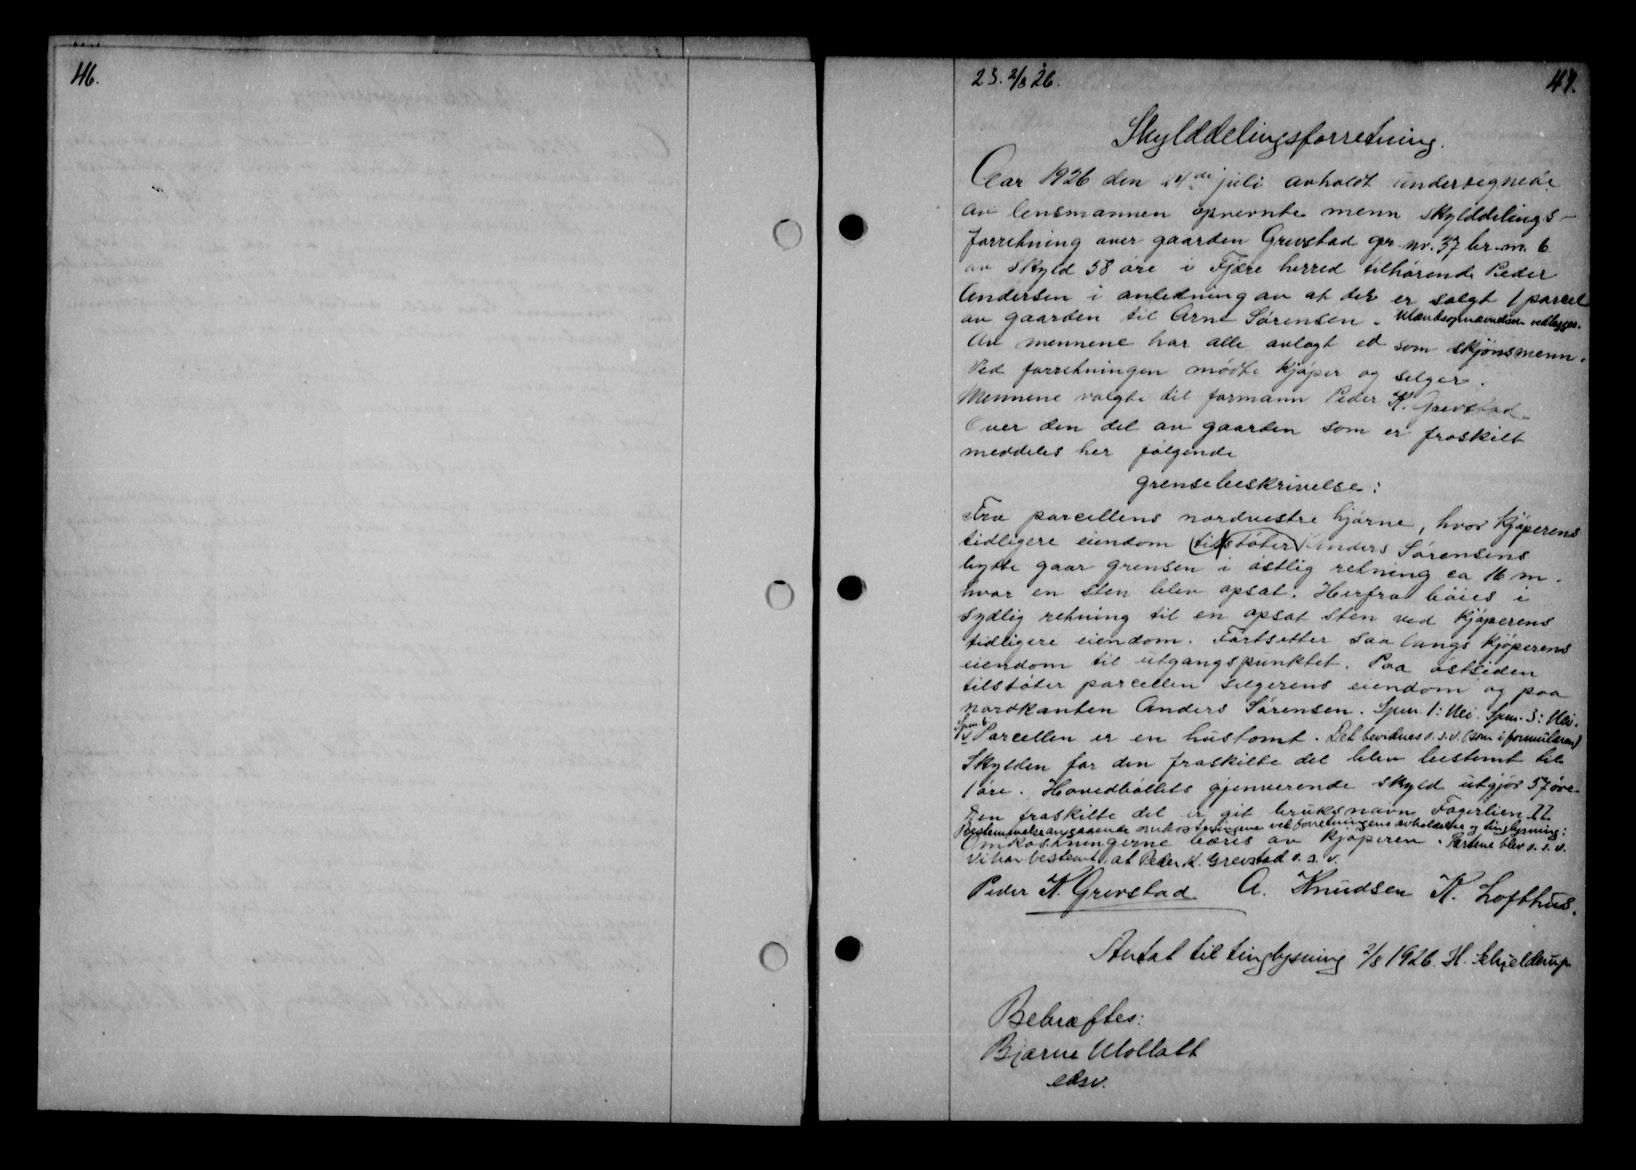 46.
23. 2/8 26.
47.
Skylddelingsforretning.
Aar 1926 den 14de juli avholdt undertegnede
av lensmannen opnevnte menn skylddelings-
forretning over gaarden Grevstad gr. nr. 37 br. nr. 6
av skyld 58 øre i Fjære herred tilhørende Peder
Andersen i anledning av at der er solgt 1 parcel
av gaarden til Arne Sørensen. Mændsopnævnelsen vedlegges.
Av mennene har alle avlagt ed som skjønsmenn.
Ved forretningen mødte kjøper og selger.
Mennene valgte til formann Peder K. Grevstad.
Over den del av gaarden som er fraskilt
meddeles her følgende
grensebeskrivelse:
Fra parcellens nordvestre hjørne, hvor kjøperens
tidligere eiendom (tilstøter) Anders Sørensens
bytte gaar grensen i østlig retning ca 16 m.
hvor en sten blev opsat. Herfra bøies i
sydlig retning til en opsat sten ved kjøperens
tidligere eiendom. Fortsetter saa langs kjøperens
eiendom til utgangspunktet. Paa østsiden
tilstøter parcellen selgerens eiendom og paa
nordkanten Anders Sørensen. Spm. 1: Nei. Spm. 3: Nei.
Spm 6:
Parcellen er en hustomt. Det bevidnes o.s.v. (som i formularen)
Skylden for den fraskilte del blev bestemt til
1 øre. Hovedbølets gjenværende skyld utgjør 57 øre
Den fraskilte del er git bruksnavn Fagerlien II
Bestemmelse angaaende omkostningene ved forretningens avholdelse og tinglysning:
Omkostningerne bæres av kjøperen. Partene blev o.s.v.
Vi har bestemt at Peder K. Grevstad o.s.v.
Peder K. Grevstad A. Knudsen K. Lofthus.
Antat til tinglysning 2/8 1926. H. Schjelderup
Bekræftes:
Bjarne Mollatt
edsv.